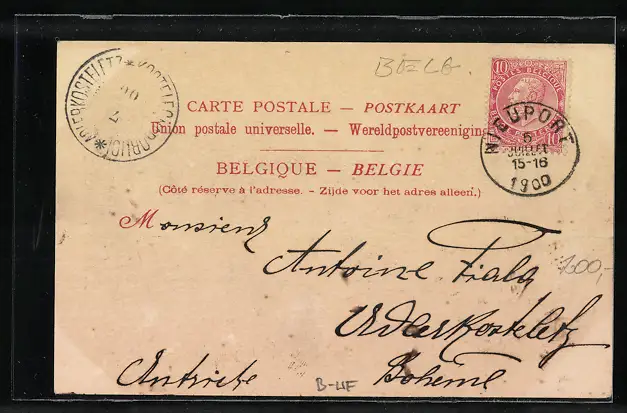 BELG.
10 10
POSTES BELGIQUE
CARTE POSTALE — POSTKAART
Union postale universelle. — Wereldpostvereeniging
BELGIQUE — BELGIE
(Côté réservé à l'adresse. - Zijde voor het adres alleen.)
NIEUPORT
5
JUILLET
15-16
1900
ADLERKOSTELETZ * KOSTELEC
7
00
Monsieur
Antoine Fiala
Adlerkosteletz
Autriche Bohême
100,-
B-UF